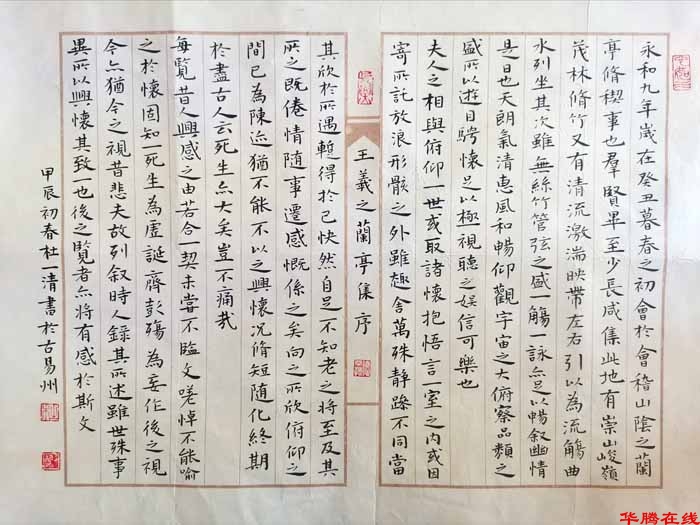 永和九年歲在癸丑暮春之初會於會稽山陰之蘭
亭脩稧事也羣賢畢至少長咸集此地有崇山峻嶺
茂林脩竹又有清流激湍映帶左右引以為流觴曲
水列坐其次雖無絲竹管弦之盛一觴一詠亦足以暢叙幽情
是日也天朗氣清惠風和暢仰觀宇宙之大俯察品類之
盛所以遊目騁懷足以極視聽之娱信可樂也
夫人之相與俯仰一世或取諸懷抱悟言一室之内或因
寄所託放浪形骸之外雖趣舍萬殊静躁不同當
王羲之蘭亭集序
其欣於所遇暫得於己快然自足不知老之將至及其
所之既倦情隨事遷感慨係之矣向之所欣俯仰之
間已為陳迹猶不能不以之興懷況脩短隨化終期
於盡古人云死生亦大矣豈不痛哉
每覽昔人興感之由若合一契未嘗不臨文嗟悼不能喻
之於懷固知一死生為虛誕齊彭殤為妄作後之視
今亦猶今之視昔悲夫故列叙時人錄其所述雖世殊事
異所以興懷其致一也後之覽者亦將有感於斯文
甲辰初春杜一清書於古易州
华腾在线